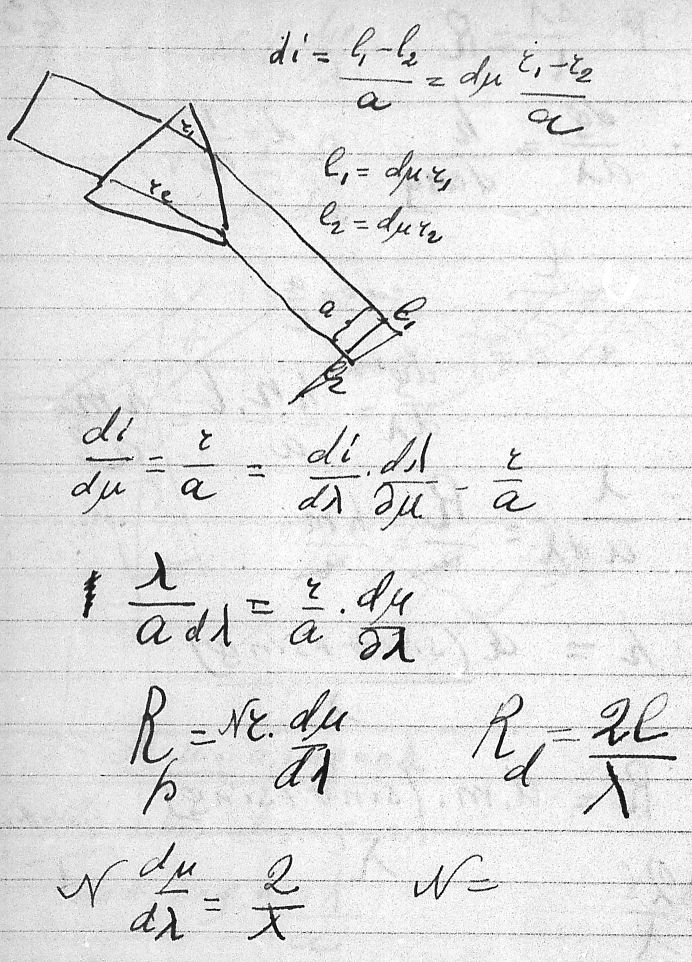 di = (l₁ - l₂)/a = dμ (r₁ - r₂)/a
r₁
l₁ = dμ r₁
r₂
l₂ = dμ r₂
a
l₁
l₂
di/dμ = r/a = di/dλ · dλ/∂μ = r/a
λ/(a dλ) = r/a · dμ/∂λ
R_p = Nr · dμ/dλ R_d = 2l/λ
N dμ/dλ = 2/λ N =